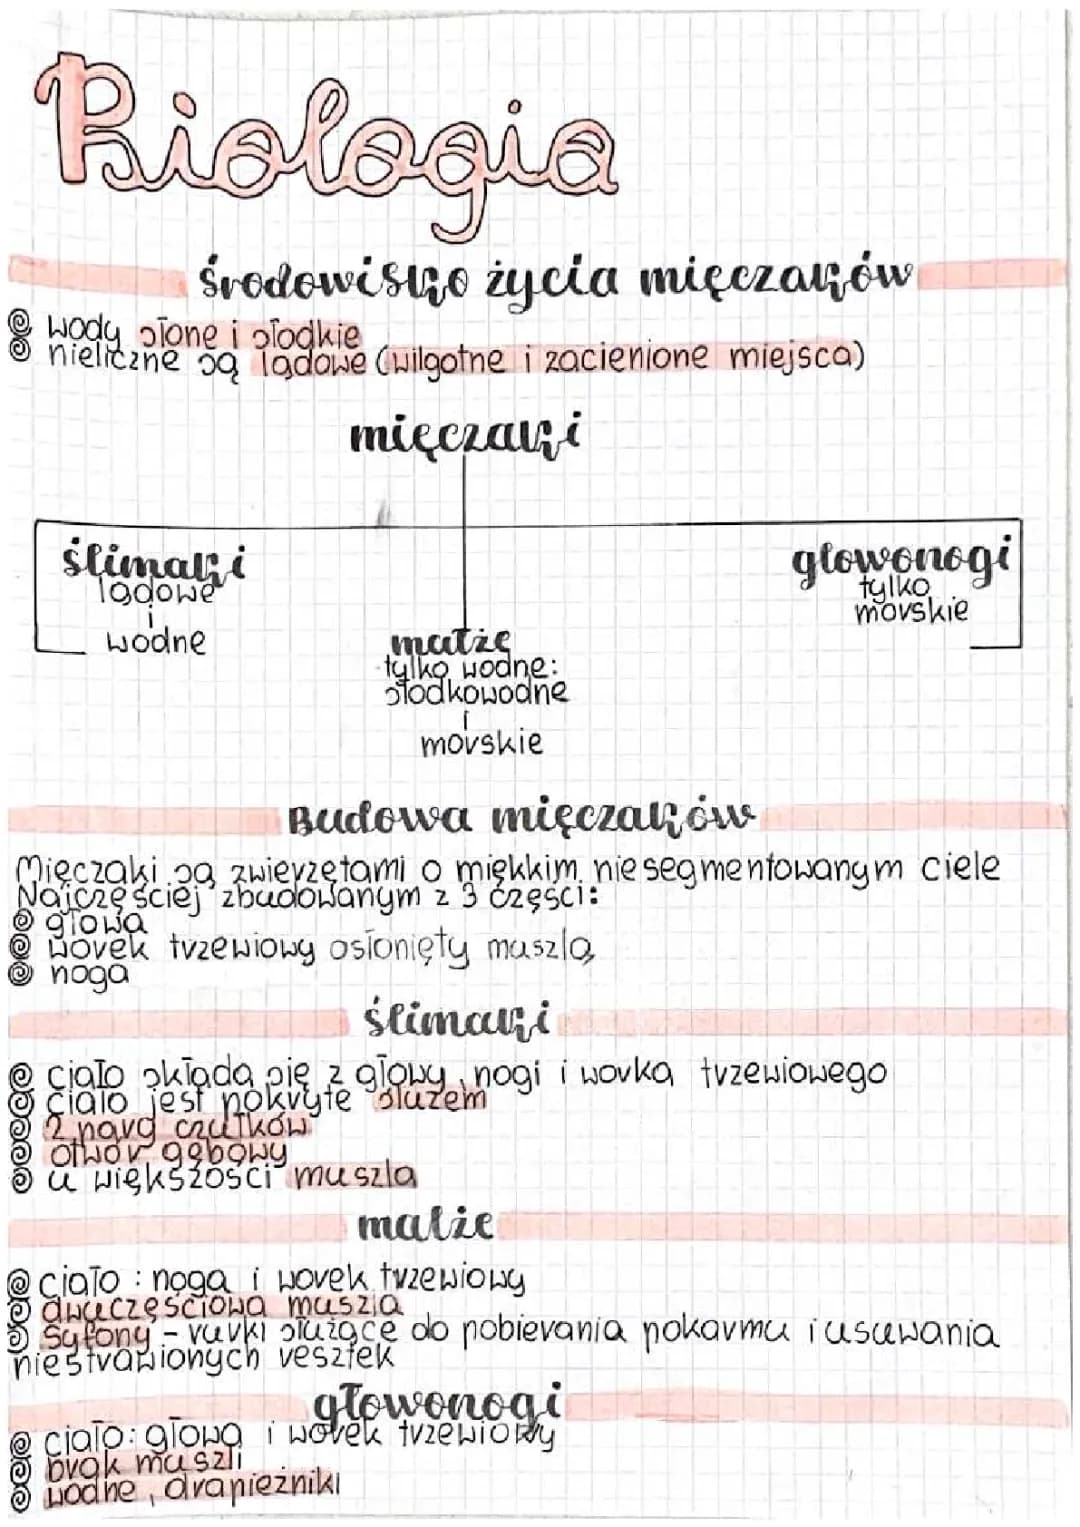 Biologia
środowisko życia mięczaków
wody słone i słodkie
nieliczne są lądowe (wilgotne i zacienione miejsca)
mięczaki
ślimaki
lądowe
i
wodne
małże
tylko wodne:
słodkowodne
i
morskie
głowonogi
tylko
morskie
Budowa mięczaków
Mięczaki są zwierzętami o miękkim, niesegmentowanym ciele
Najczęściej zbudowanym z 3 części:
głowa
worek trzewiowy osłonięty muszlą
noga
ślimaki
ciało składa się z głowy, nogi i worka trzewiowego
ciało jest pokryte śluzem
2 pary czułków
otwór gębowy
u większości muszla
małże
ciało: noga i worek trzewiowy
dwuczęściowa muszla
Syfony - rurki służące do pobierania pokarmu i usuwania
niestrawionych resztek
głowonogi
ciało: głowa i worek trzewiowy
brak muszli
wodne, drapieżniki